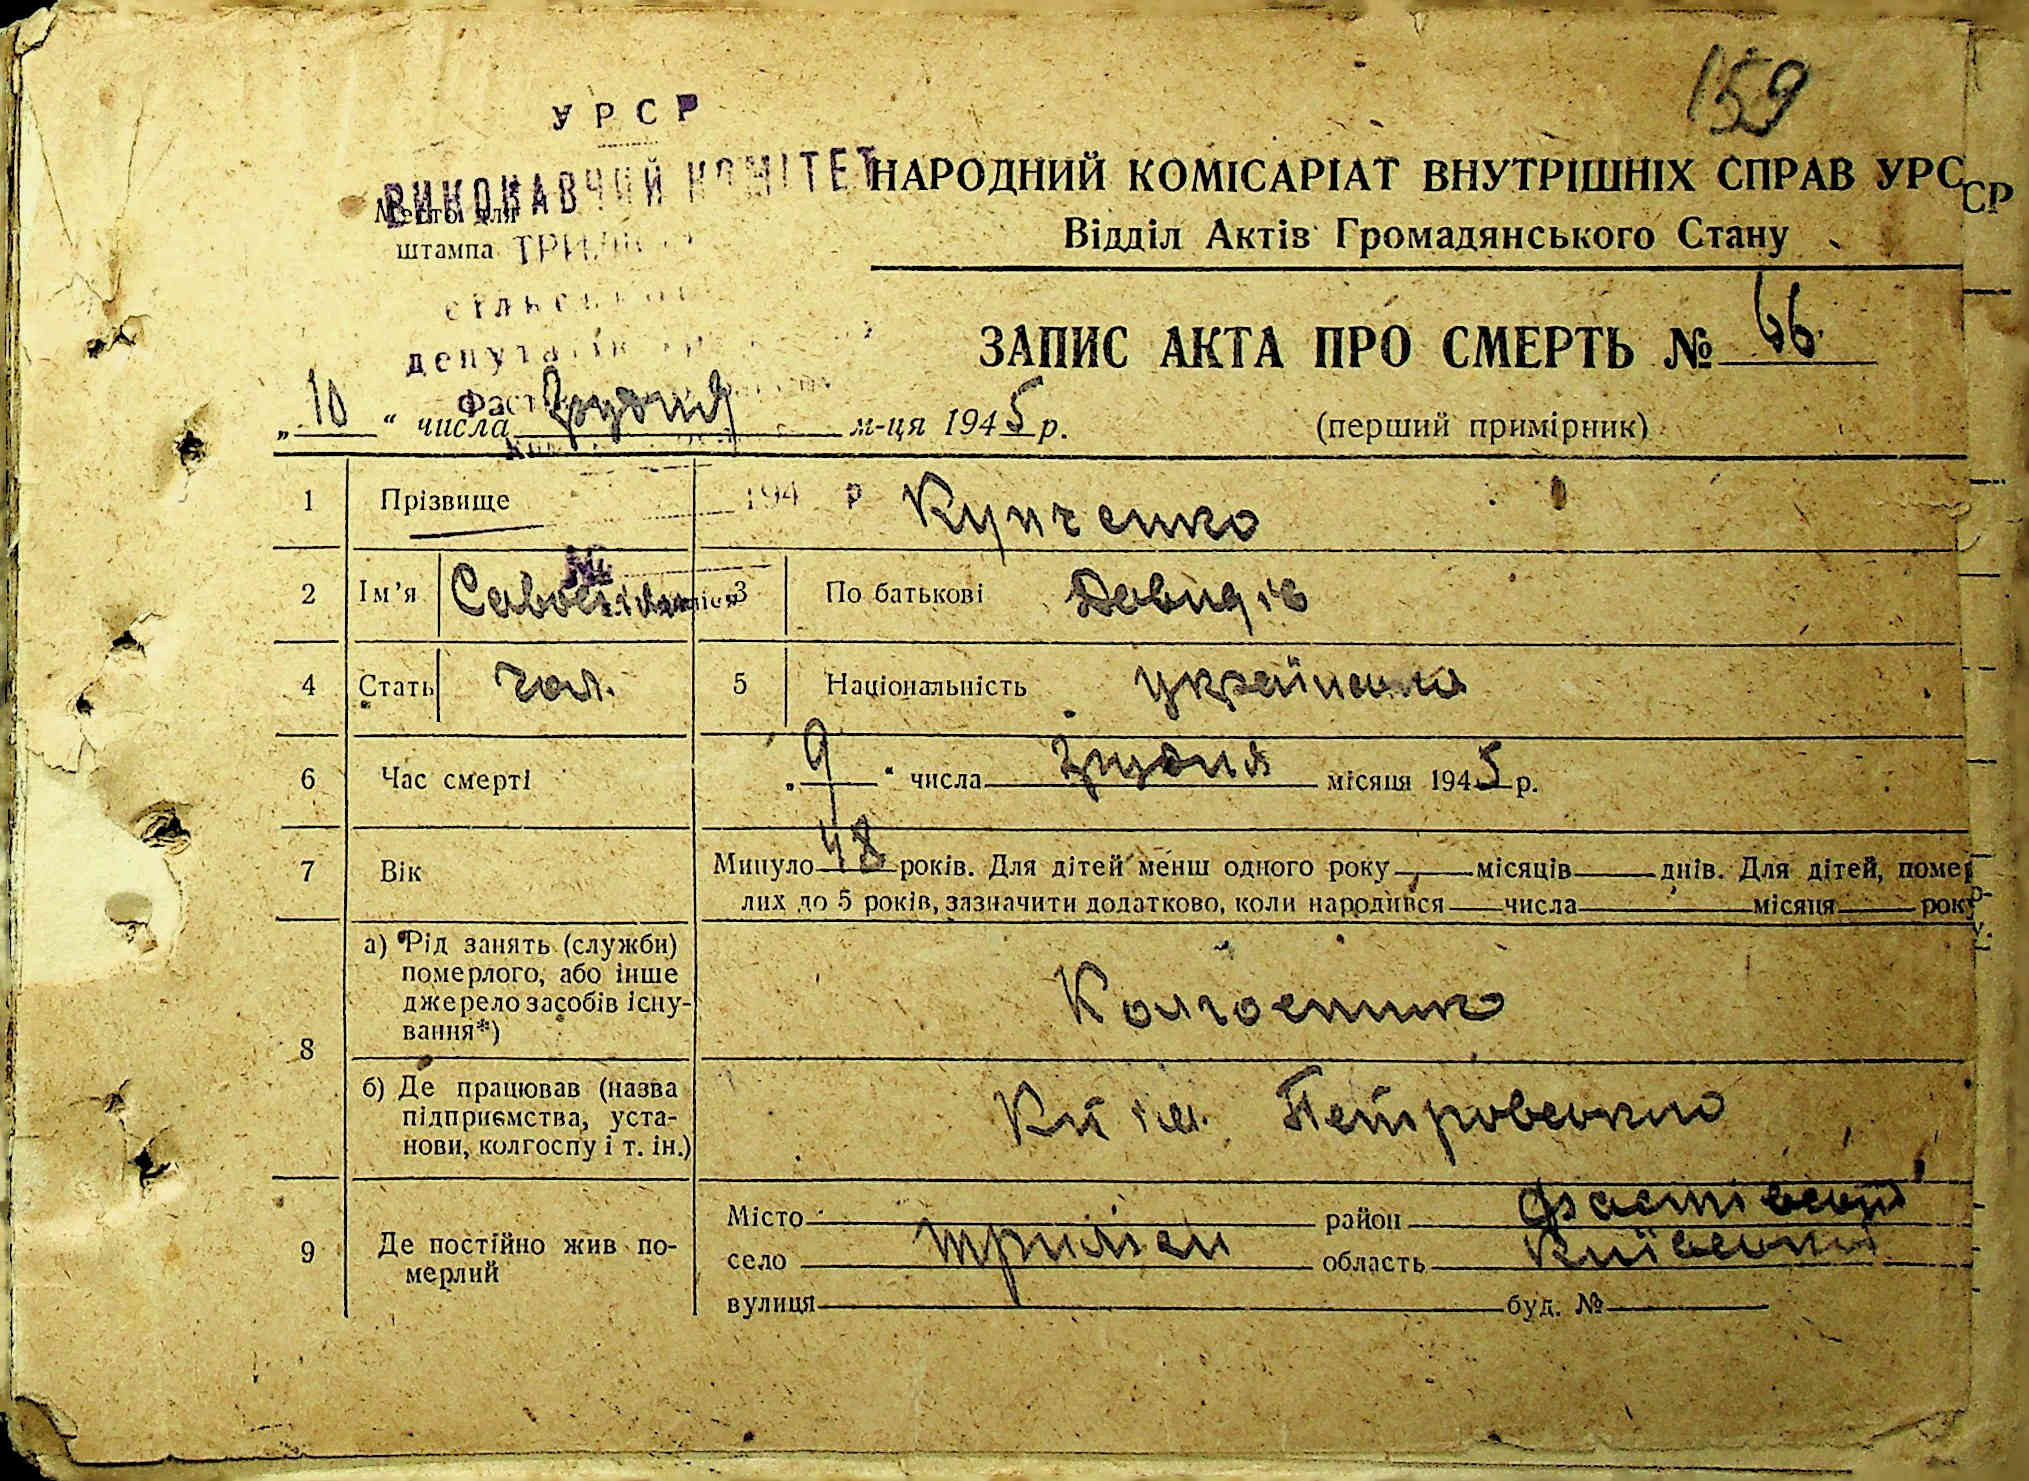 159
УРСР
ВИКОНАВЧИЙ КОМІТЕТ
НАРОДНИЙ КОМІСАРІАТ ВНУТРІШНІХ СПРАВ УРС
СР
Місто для
штампа
Відділ Актів Громадянського Стану
депутатів
ЗАПИС АКТА ПРО СМЕРТЬ № 66.
„10“ числа Грудня м-ця 1945 р. (перший примірник)
194 р
1 Прізвище Купченко
2 Ім’я 3 По батькові Довидів
№
4 Стать чол. 5 Національність українська
6 Час смерті „9“ числа грудня місяця 1945 р.
7 Вік Минуло 48 років. Для дітей менш одного року місяців днів. Для дітей, помер
лих до 5 років, зазначити додатково, коли народився числа місяця року
р-
у.
8 а) Рід занять (служби)
померлого, або інше
джерело засобів існу-
вання*)
Колгоспник
б) Де працював (назва
підприємства, уста-
нови, колгоспу і т. ін.)
К-п ім. Петровського
9 Де постійно жив по-
мерлий
Місто район Фастівський
село Триліси область Київський
вулиця буд. №